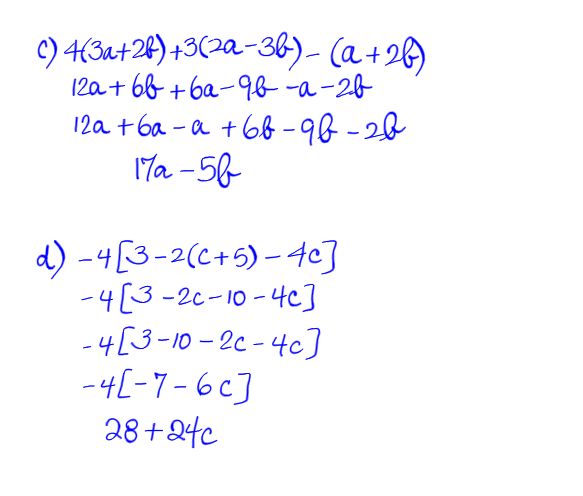 c) 4(3a+2b)+3(2a-3b)-(a+2b)
12a+6b+6a-9b-a-2b
12a+6a-a+6b-9b-2b
17a-5b
d) -4[3-2(c+5)-4c]
-4[3-2c-10-4c]
-4[3-10-2c-4c]
-4[-7-6c]
28+24c